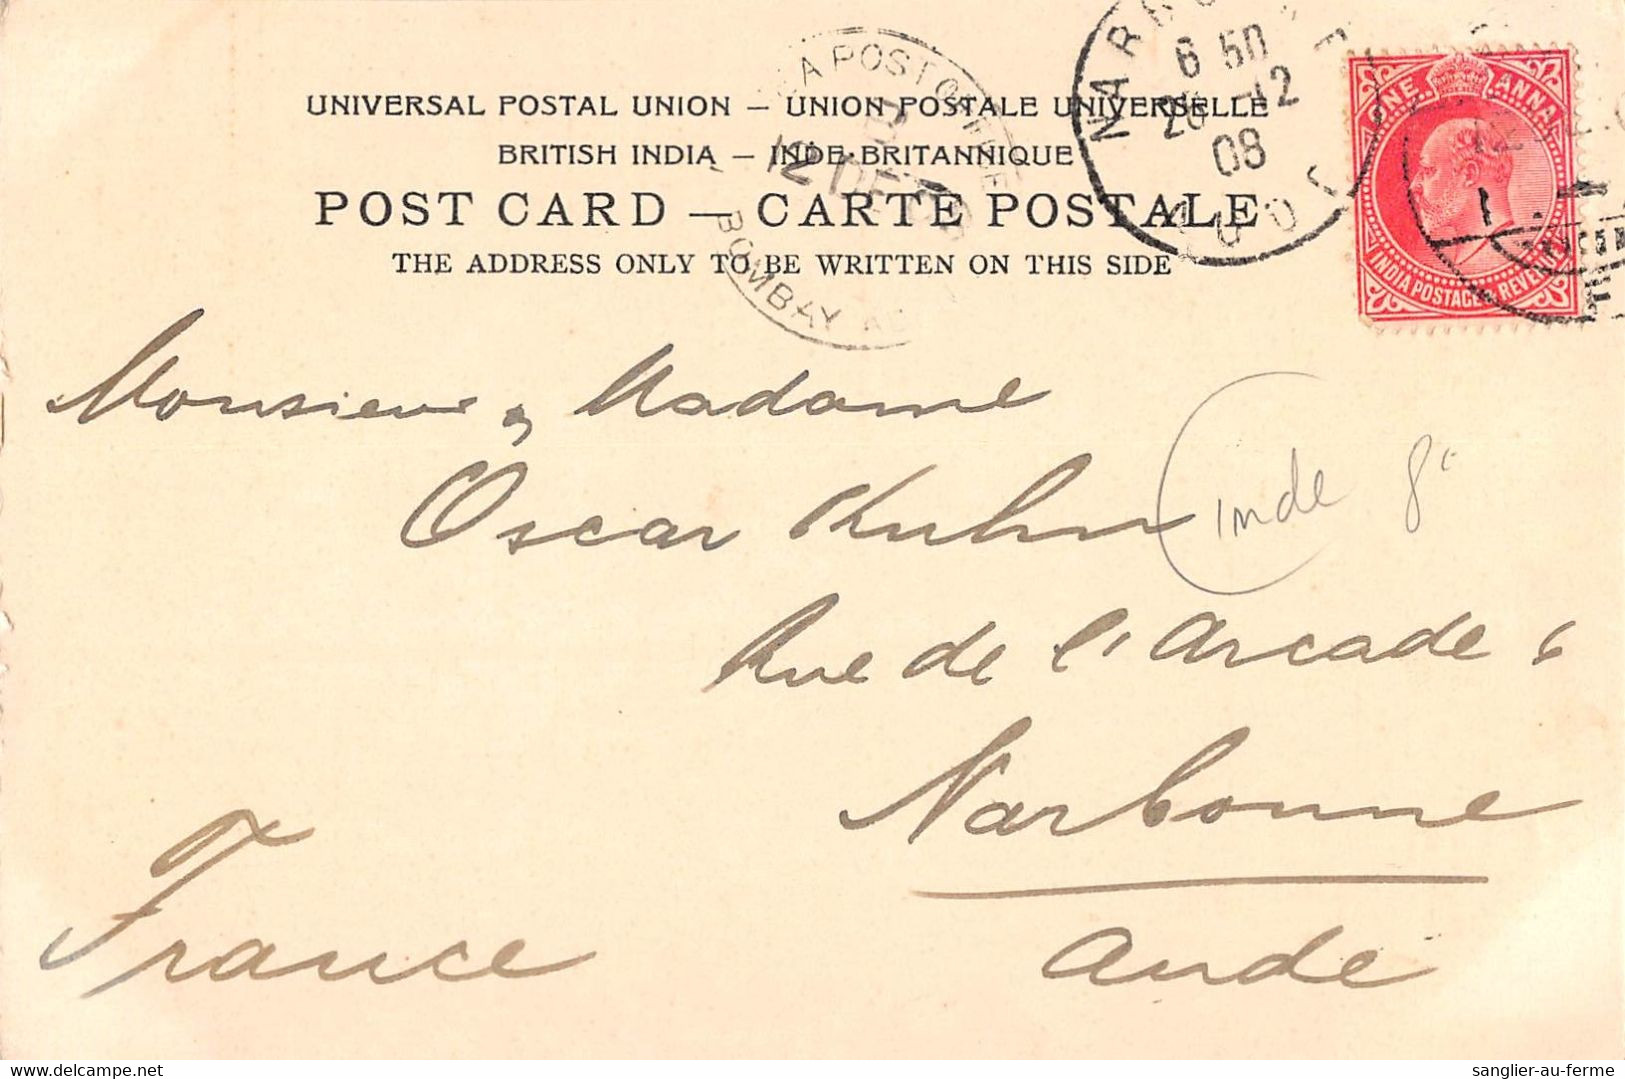 UNIVERSAL POSTAL UNION — UNION POSTALE UNIVERSELLE
BRITISH INDIA — INDE BRITANNIQUE
POST CARD — CARTE POSTALE
THE ADDRESS ONLY TO BE WRITTEN ON THIS SIDE
SEA POST OFFICE
D
12 DE
BOMBAY
6 50
12
08
AUDE
ONE ANNA
INDIA POSTAGE & REVENUE
Monsieur, Madame
Oscar Kuhn
Inde 8€
Rue de l'Arcade 6
Narbonne
Aude
France
sanglier-au-ferme